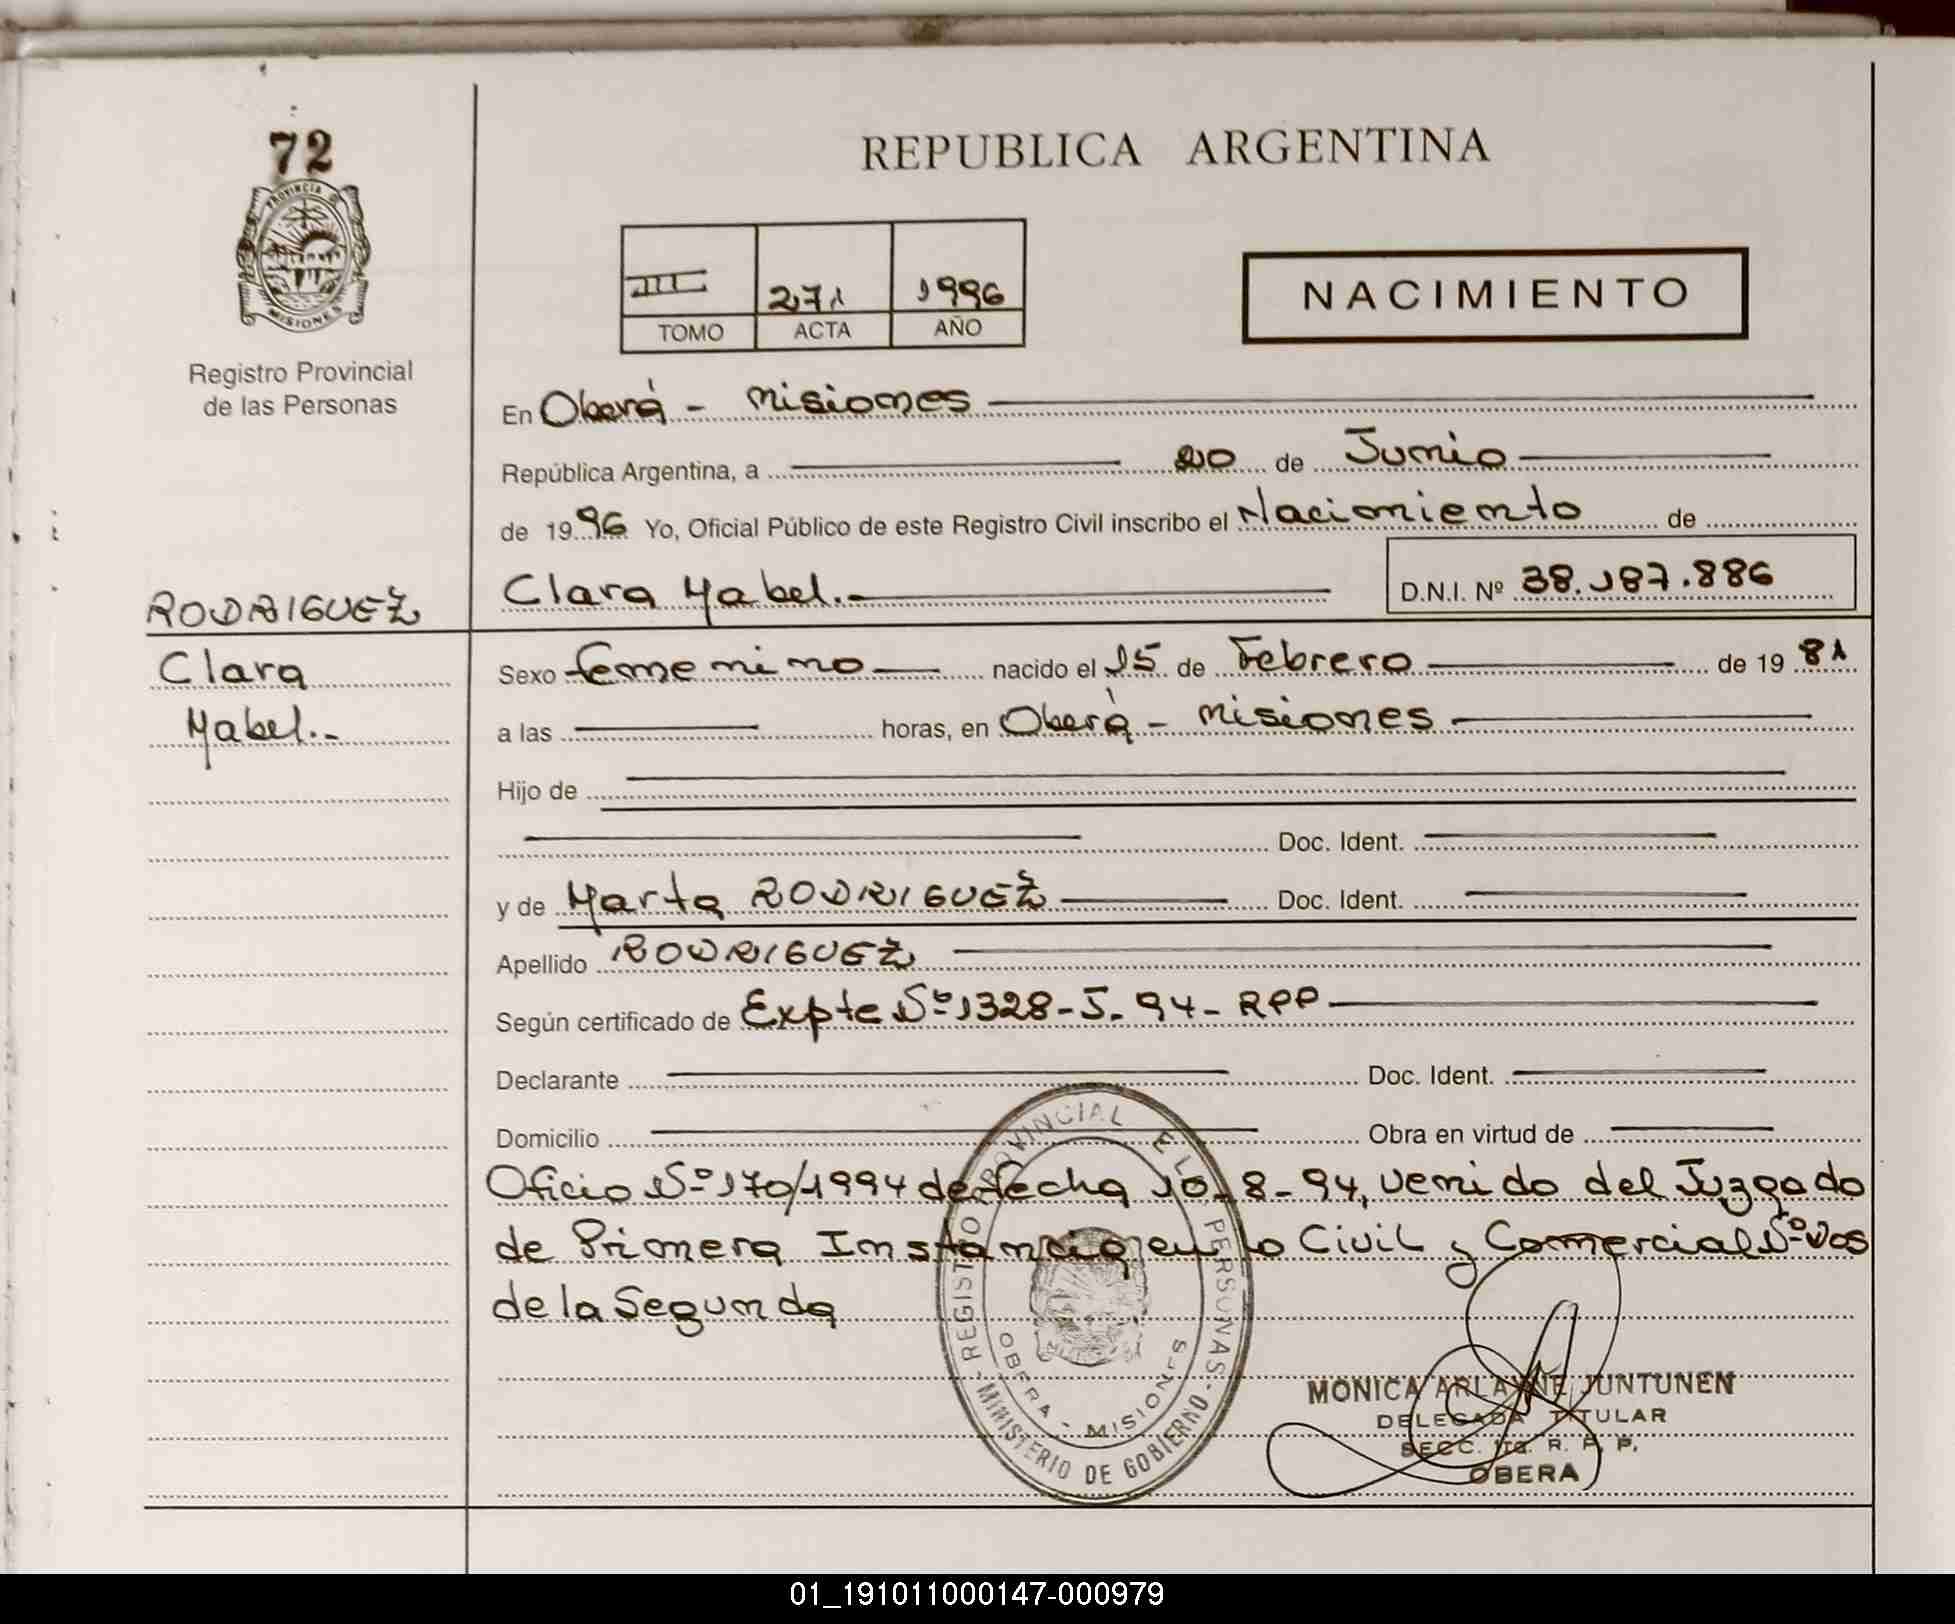 72
PROVINCIA DE
MISIONES
Registro Provincial
de las Personas
REPUBLICA ARGENTINA
III 271 1996
TOMO ACTA AÑO
NACIMIENTO
En Oberá - Misiones
República Argentina, a 20 de Junio
de 1996 Yo, Oficial Público de este Registro Civil inscribo el Nacimiento de
Clara Mabel.- D.N.I. Nº 38.187.886
RODRIGUEZ
Clara
Mabel.-
Sexo femenino nacido el 15 de Febrero de 1981
a las horas, en Oberá - Misiones
Hijo de
Doc. Ident.
y de Marta RODRIGUEZ Doc. Ident.
Apellido RODRIGUEZ
Según certificado de Expte Nº 1328-J-94-RPP
Declarante Doc. Ident.
Domicilio Obra en virtud de
Oficio Nº 170/1994 de fecha 10-8-94, venido del Juzgado
de Primera Instancia en lo Civil y Comercial Nº Dos
de la Segunda
REGISTRO PROVINCIAL DE LAS PERSONAS - MINISTERIO DE GOBIERNO -
OBERA - MISIONES
MONICA ARLAYNE JUNTUNEN
DELEGADA TITULAR
SECC. R. P. P.
OBERA
01_191011000147-000979